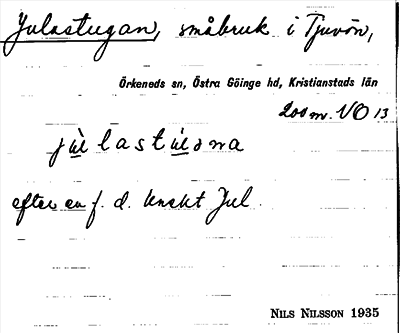 Julastugan, småbruk i Tjuvön,
Örkeneds sn, Östra Göinge hd, Kristianstads län
200 m. NO 13
efter en f. d. knekt Jul.
NILS NILSSON 1935